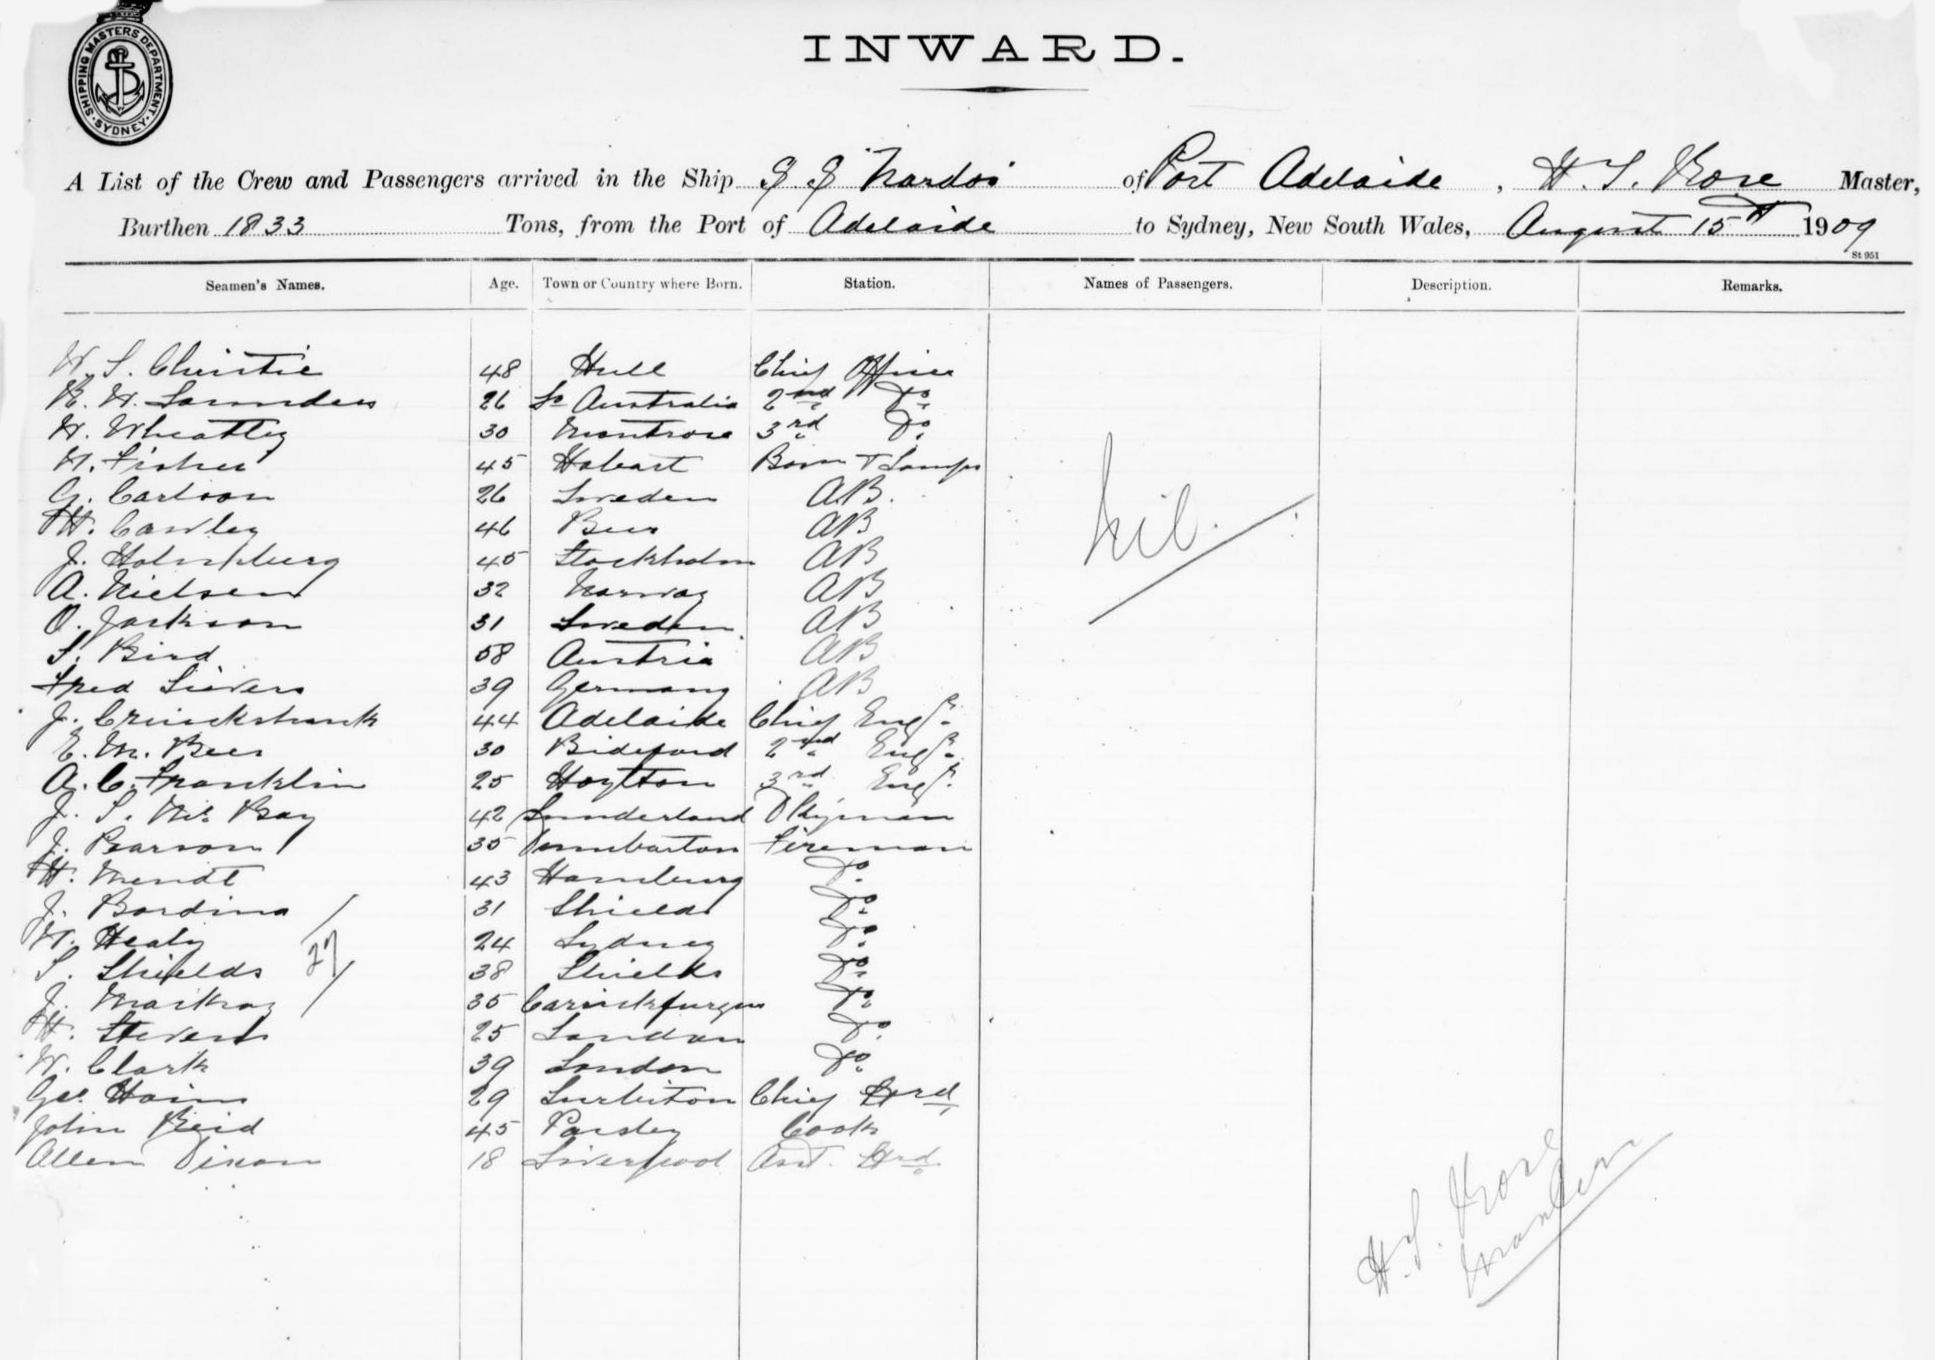 SHIPPING MASTERS DEPARTMENT. SYDNEY.
INWARD.
A List of the Crew and Passengers arrived in the Ship S S Nardoo of Port Adelaide, H. S. Rose Master,
Burthen 1833 Tons, from the Port of Adelaide to Sydney, New South Wales, August 15th 1909
St 951
Seamen's Names. Age. Town or Country where Born. Station. Names of Passengers. Description. Remarks.
W. S. Christie 48 Hull Chief Officer
W. Saunders 26 So Australia 2nd Do
W. Wheatley 30 Montrose 3rd Do
Fisher 45 Hobart Bosn + Lamps
G. Carlson 26 Sweden A.B.
H. Cawley 46 AB
nil.
J. Holmburg 45 Stockholm AB
A. Nielsen 32 Norway AB
O. Jackson 31 Sweden AB
S. Bird 58 Austria AB
Fred Sievers 39 Germany AB
J. Cruickshank 44 Adelaide Chief Engr.
E. M. Beer 30 Bideford 2nd Engr.
A. C. Franklin 25 3rd Engr.
J. S. 42 Sunderland Dkyman
J. Pearson 35 Dumbarton Fireman
H. Wendt 43 Hamburg Do
J. 31 Shields Do
W. Healy 24 Sydney Do
27
S. Shields 38 Shields Do
J. 35 Carrickfurgus Do
H. Stevens 25 London Do
W. Clark 39 London Do
Geo. Hains 29 Surbiton Chief Stwd
John Reid 45 Paisley Cook
Allen Dixon 18 Liverpool Asst. Stwd
H. S. Rose
Master